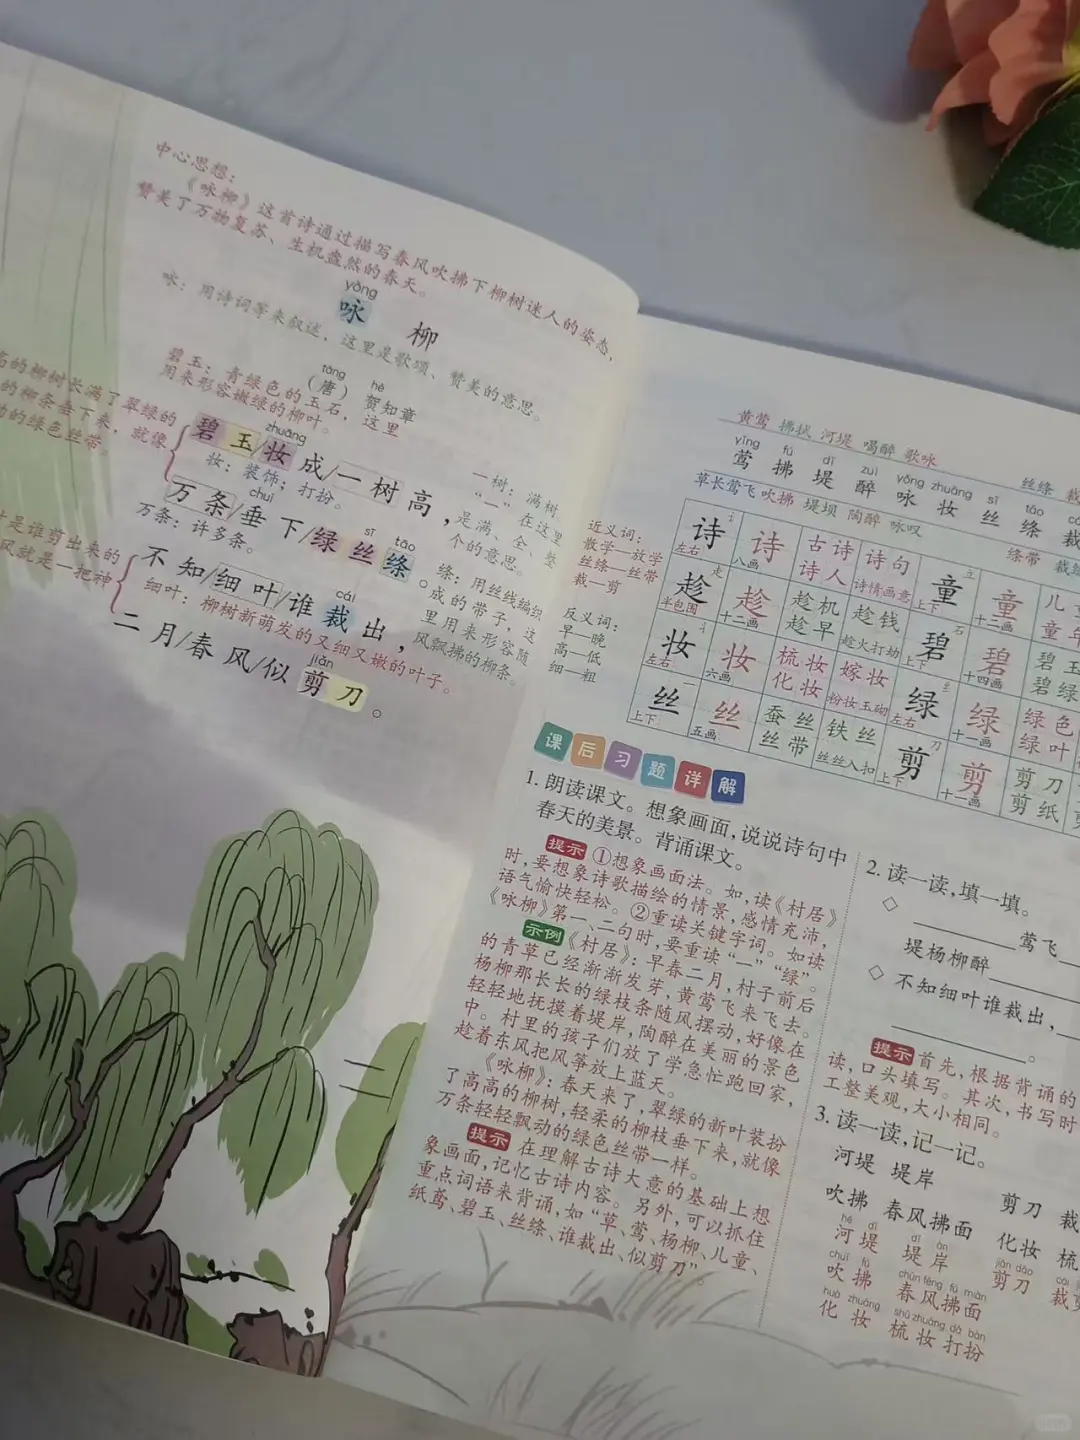 中心思想：
《咏柳》这首诗通过描写春风吹拂下柳树迷人的姿态，
赞美了万物复苏、生机盎然的春天。
yǒng
咏 柳
咏：用诗词等来叙述，这里是歌颂、赞美的意思。
táng hè
（唐）贺知章
碧玉：青绿色的玉石，这里
用来形容嫩绿的柳叶。
高的柳树长满了翠绿的
的柳条垂下来，就像
动的绿色丝带。
zhuāng
碧玉/妆成/一树高，
妆：装饰；打扮。
一树：满树。
“一”在这里
是满、全、整
个的意思。
chuí sī tāo
万条/垂下/绿丝绦。
万条：许多条。
绦：用丝线编织
成的带子，这
里用来形容随
风飘拂的柳条。
是谁剪出来的
风就是一把神
cái
不知/细叶/谁裁出，
细叶：柳树新萌发的又细又嫩的叶子。
jiǎn
二月/春风/似剪刀。
黄莺 拂拭 河堤 喝醉 歌咏 丝绦
yīng fú dī zuì yǒng zhuāng sī tāo
莺 拂 堤 醉 咏 妆 丝 绦 裁
草长莺飞 吹拂 堤坝 陶醉 咏叹 绦带
近义词：
散学—放学
丝绦—丝带
裁—剪
反义词：
早—晚
高—低
细—粗
诗 左右 诗 八画 古诗 诗句 诗人 诗情画意 童 上下 童 十二画
趁 半包围 趁 十二画 趁机 趁钱 趁早 趁火打劫 碧 上下 碧 十四画 碧玉 碧绿
妆 左右 妆 六画 梳妆 嫁妆 化妆 粉妆玉砌 绿 左右 绿 十一画 绿色 绿叶
丝 上下 丝 五画 蚕丝 铁丝 丝带 丝丝入扣 剪 上下 剪 十一画 剪刀 剪纸
课后习题详解
1. 朗读课文。想象画面，说说诗句中
春天的美景。背诵课文。
提示 ①想象画面法。如，读《村居》
时，要想象诗歌描绘的情景，感情充沛，
语气愉快轻松。②重读关键字词。如读
《咏柳》第一、二句时，要重读“一”“绿”。
示例《村居》：早春二月，村子前后
的青草已经渐渐发芽，黄莺飞来飞去。
杨柳那长长的绿枝条随风摆动，好像在
轻轻地抚摸着堤岸，陶醉在美丽的景色
中。村里的孩子们放了学急忙跑回家，
趁着东风把风筝放上蓝天。
《咏柳》：春天来了，翠绿的新叶装扮
了高高的柳树，轻柔的柳枝垂下来，就像
万条轻轻飘动的绿色丝带一样。
提示 在理解古诗大意的基础上想
象画面，记忆古诗内容。另外，可以抓住
重点词语来背诵，如“草、莺、杨柳、儿童、
纸鸢、碧玉、丝绦、谁裁出、似剪刀”。
2. 读一读，填一填。
◇ 莺飞
堤杨柳醉
◇ 不知细叶谁裁出，
。
提示 首先，根据背诵的
读，口头填写。其次，书写时
工整美观，大小相同。
3. 读一读，记一记。
河堤 堤岸 剪刀 裁
吹拂 春风拂面 化妆 梳
hé dī dī àn jiǎn dāo
河堤 堤岸 剪刀 裁
chuī fú chūn fēng fú miàn
吹拂 春风拂面
huà zhuāng shū zhuāng dǎ bàn
化妆 梳妆打扮